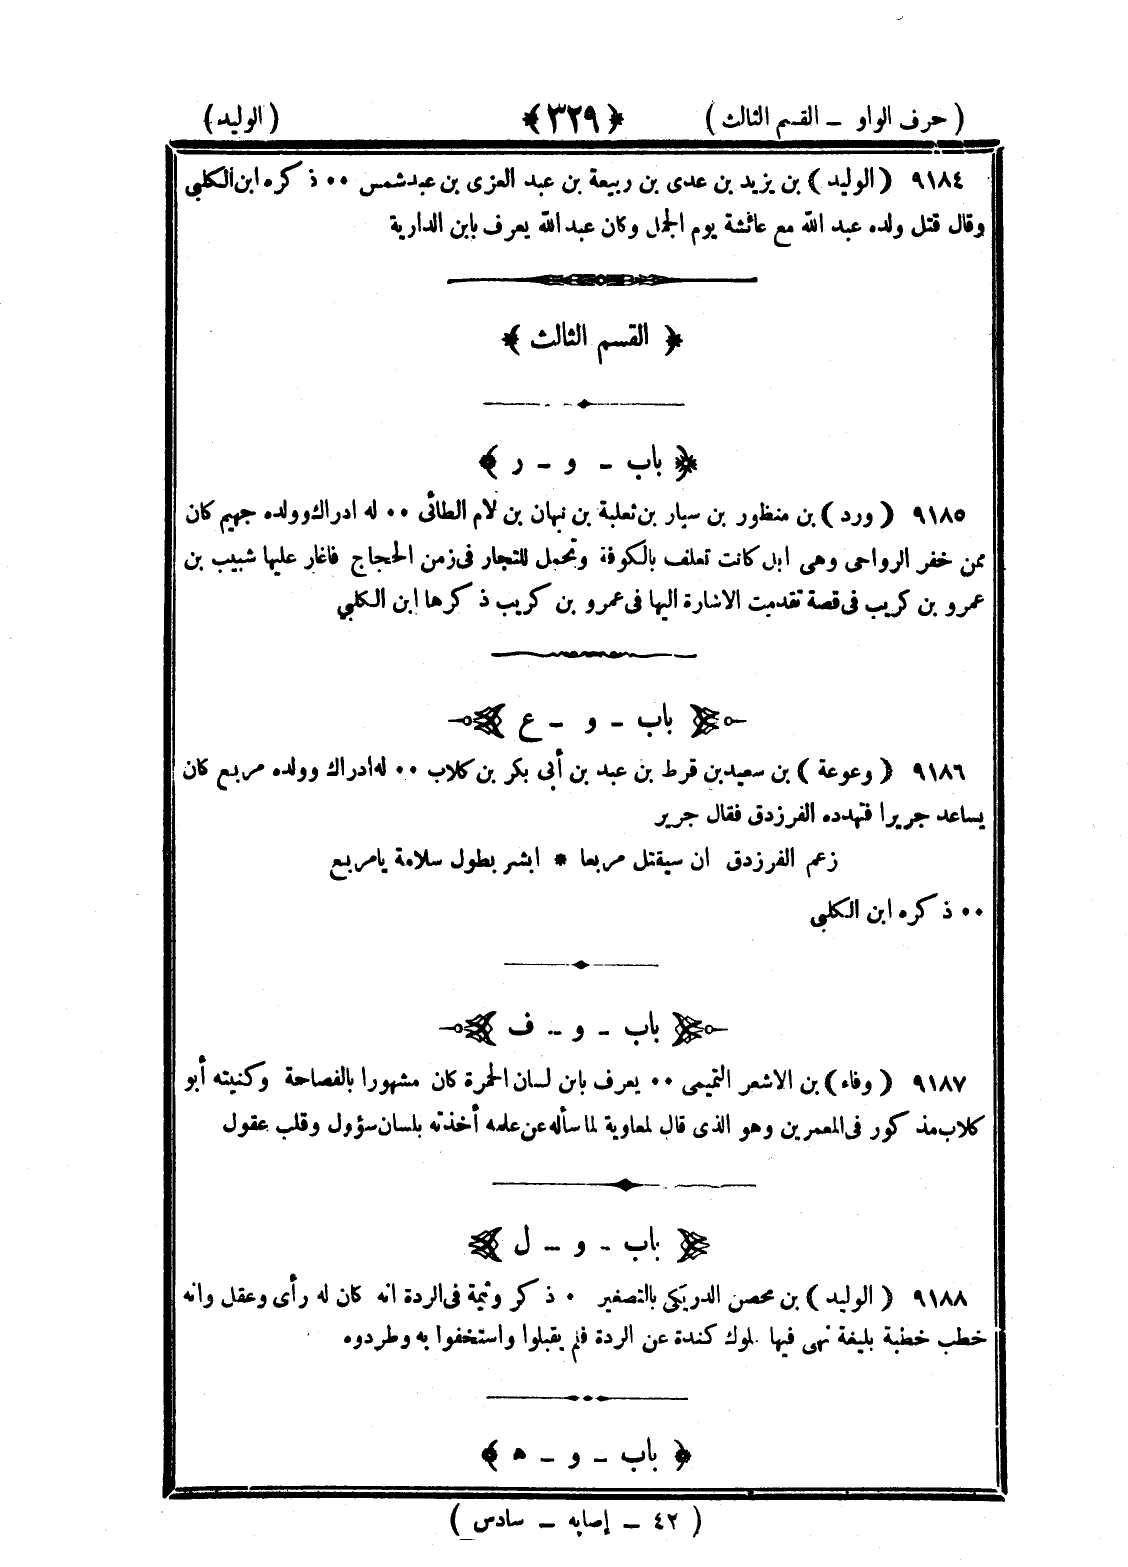 ( حرف الواو ـ القسم الثالث ) ﴿ ٣٢٩ ﴾ ( الوليد )
٩١٨٤ ( الوليد ) بن يزيد بن عدى بن ربيعة بن عبد العزى بن عبدشمس ٠٠ ذكره ابن الكلبي
وقال قتل ولده عبد الله مع عائشة يوم الجمل وكان عبد الله يعرف بابن الدارية
﴿ القسم الثالث ﴾
﴿ باب ـ و ـ ر ﴾
٩١٨٥ ( ورد ) بن منظور بن سيار بن ثعلبة بن نبهان بن لام الطائى ٠٠ له ادراك وولده جهيم كان
ممن خفر الرواحى وهى ابل كانت تعلف بالكوفة وتحمل للتجار فى زمن الحجاج فاغار عليها شبيب بن
عمرو بن كريب فى قصة تقدمت الاشارة اليها فى عمرو بن كريب ذكرها ابن الكلبي
باب ـ و ـ ع
٩١٨٦ ( وعوعة ) بن سعيد بن قرط بن عبد بن أبى بكر بن كلاب ٠٠ له ادراك وولده مربع كان
يساعد جريرا فتهدده الفرزدق فقال جرير
زعم الفرزدق ان سيقتل مربعا * ابشر بطول سلامة يا مربع
٠٠ ذكره ابن الكلبي
باب ـ و ـ ف
٩١٨٧ ( وفاء ) بن الاشعر التميمى ٠٠ يعرف بابن لسان الحمرة كان مشهورا بالفصاحة وكنيته أبو
كلاب مذكور فى المعمرين وهو الذى قال لمعاوية لما سأله عن علمه أخذته بلسان سؤول وقلب عقول
باب ـ و ـ ل
٩١٨٨ ( الوليد ) بن محصن الدريكى بالتصغير ٠ ذكر وثيمة فى الردة انه كان له رأى وعقل وانه
خطب خطبة بليغة نهى فيها لملوك كندة عن الردة فلم يقبلوا واستخفوا به وطردوه
﴿ باب ـ و ـ ه ﴾
( ٤٢ ـ إصابه ـ سادس )